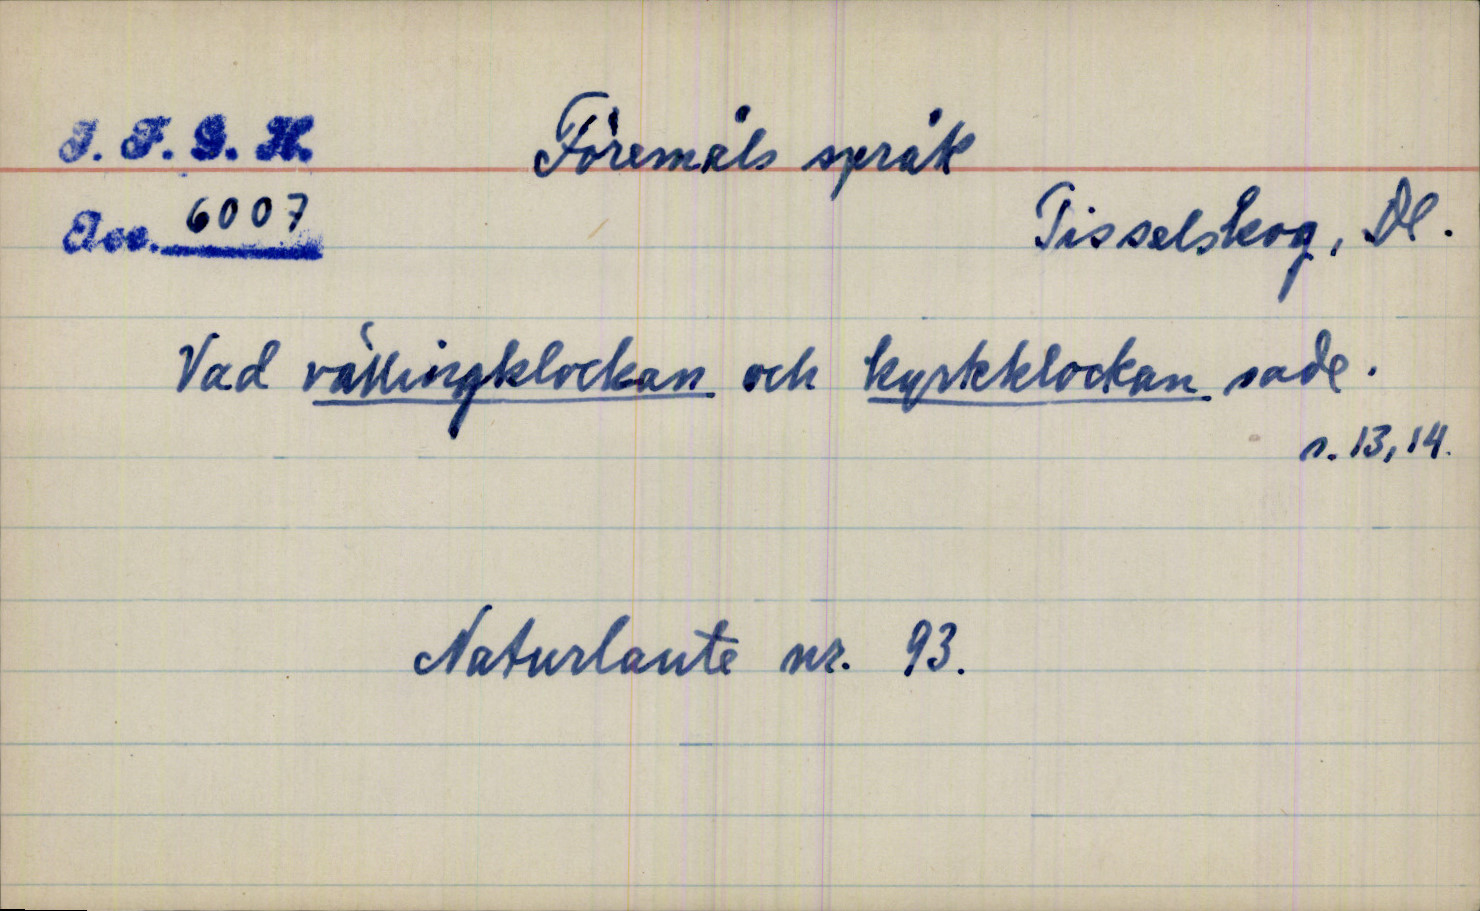 I. F. G. H.
Föremåls språk
Acc. 6007
Tisselskog, Dl.
Vad vällingklockan och kyrkklockan sade.
s. 13, 14.
Naturlaute nr. 93.